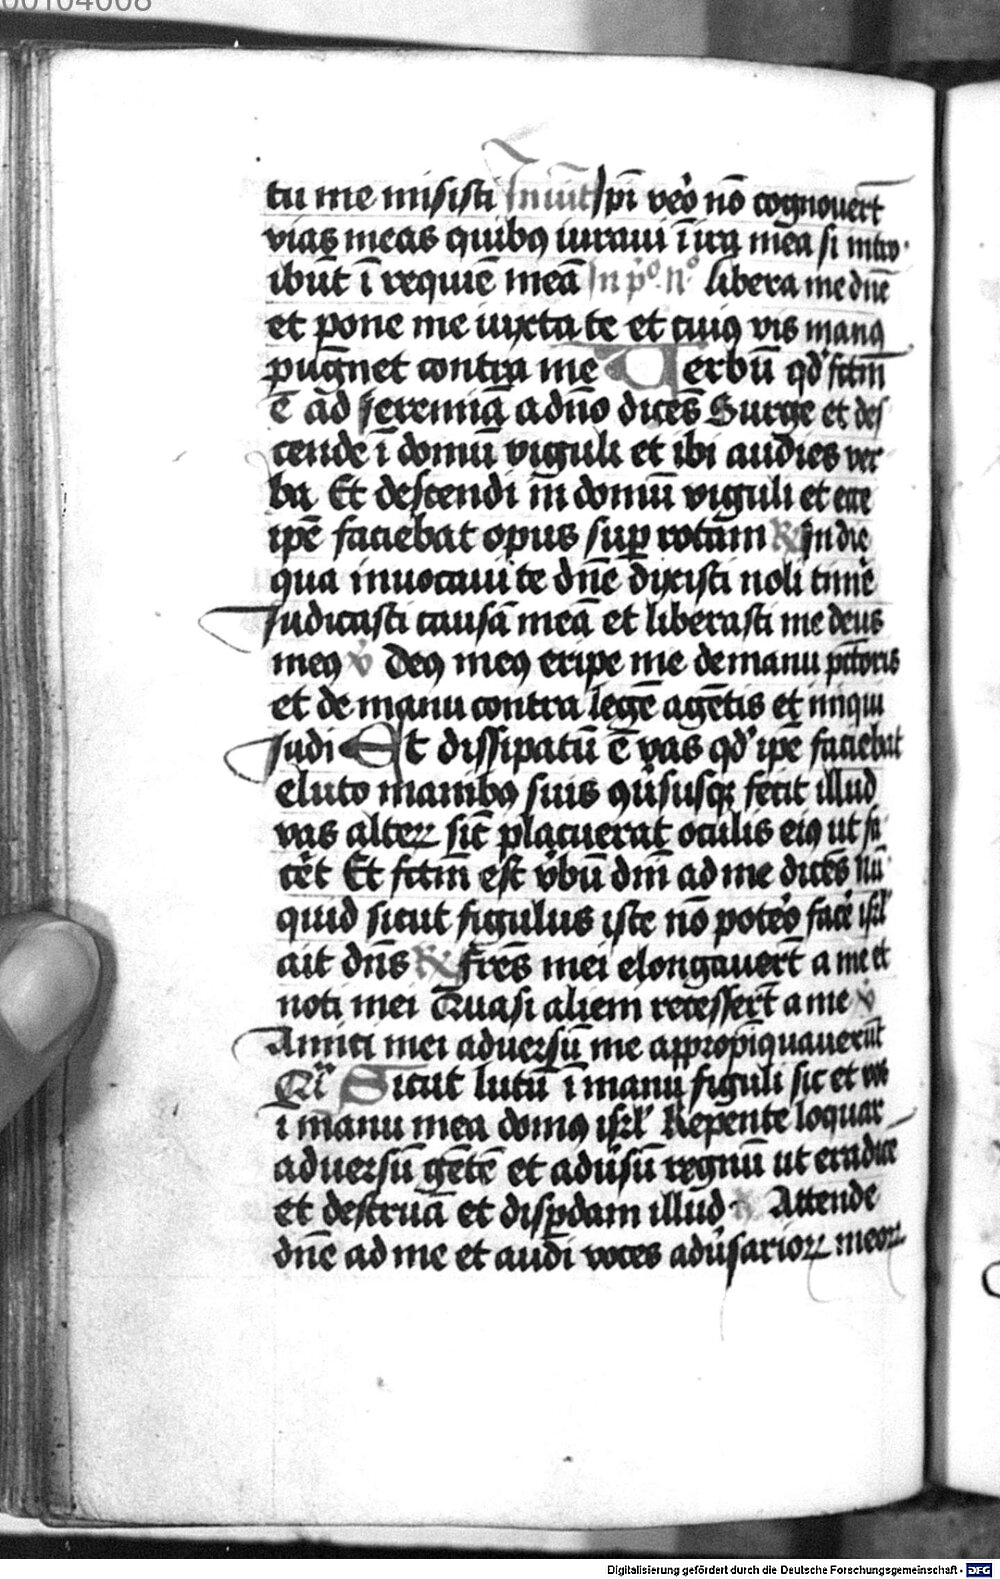 00104008
tu me misisti Inuit Ipī vēo nō cognouert̄
vias meas quibꝯ iuraui ī ira mea si intro
ibūt ī requiē meā In p̊. n̊ libera me dn̄e
et pone me iuxta te et cuiꝯ vis manꝯ
pugnet contra me Uerbū qd' fctm̄
ē ad Jeremiā a dn̄o dicēs Surge et des
cende ī domū viguli et ibi audies ver
ba Et descendi in domū viguli et ecce
ipē faciebat opus suꝑ rotam ℟ In die
qua inuocaui te dn̄e dixisti noli timē
Judicasti causā meā et liberasti me deus
meꝯ ℣ Deꝯ meꝯ eripe me de manu pc̄toris
et de manu contra legē agētis et iniqui
Judi Et dissipatū ē vas qd' ipē faciebat
e luto manibꝯ suis ꝯu̓susqꝫ fecit illud
vas alteꝝ sic̄ placuerat oculis eiꝯ ut fa
cēt Et fctm̄ est v̓bū dn̄i ad me dicēs Nū
quid sicut figulus iste nō potēo facē isrl'
ait dn̄s ℟ fr̄es mei elongauert̄ a me et
noti mei Quasi alieni recessert̄ a me ℣
Amici mei aduersū me appropīquauerūt
Qͥ Sicut lutū ī manu figuli sic et vos
ī manu mea domꝯ isrl' Repente loquar
aduersū gētē et adu̓sū regnū ut eradice
et destruā et disꝑdam illud ℟ Attende
dn̄e ad me et audi voces adu̓sarioꝝ meoꝝ
Digitalisierung gefördert durch die Deutsche Forschungsgemeinschaft - DFG